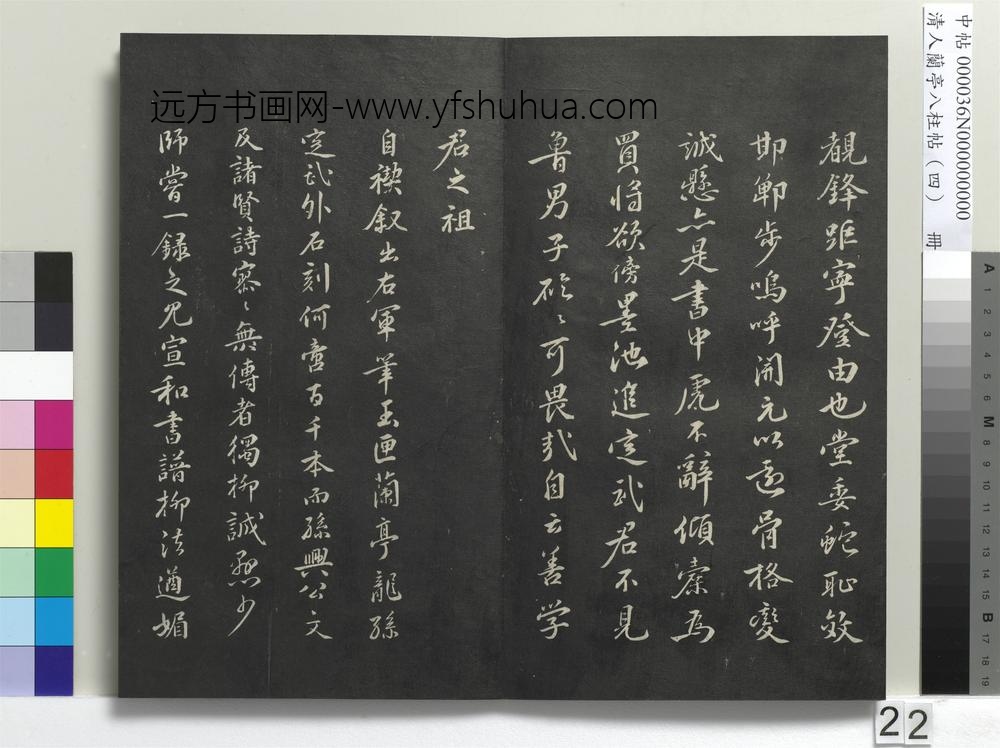 覩鋒距寧登由也堂委蛇恥效
邯鄲步嗚呼開元以還骨格變
誠懸亦是書中虎不辭傾橐為
買將欲傍墨池進定武君不見
魯男子硜〻可畏哉自云善学
君之祖
自禊叙出右軍筆玉匣蘭亭龍孫
定武外石刻何啻百千本而孫興公文
及諸賢詩寥〻無傳者獨柳誠懸少
師嘗一録之見宣和書譜柳法遒媚
远方书画网-www.yfshuhua.com
中帖 000036N000000000
清人蘭亭八柱帖（四） 冊
A 1 2 3 4 5 6 M 8 9 10 11 12 13 14 15 B 17 18 19
22